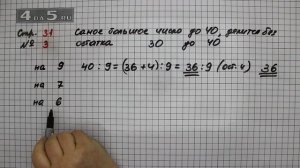 4APOK.RU
Стр. 31 Самое большое число до 40, делится без
№ 3 остатка 30 до 40
на 9 40 : 9 = (36 + 4) : 9 = 36 : 9 (ост. 4) 36
на 7
на 6